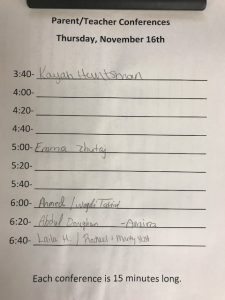 Parent/Teacher Conferences
Thursday, November 16th
3:40- Kayah Huntsman
4:00-
4:20-
4:40-
5:00- Emma
5:20-
5:40-
6:00- Ahmed /
6:20- Abdul - Amira
6:40- Laila H. / Rachael + Marty
Each conference is 15 minutes long.